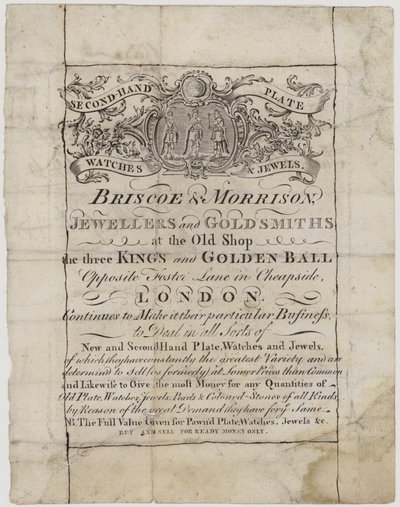 SECOND-HAND PLATE
WATCHES & JEWELS,
BRISCOE & MORRISON,
JEWELLERS and GOLDSMITHS,
at the Old Shop
the three KINGS and GOLDEN BALL
Opposite Foster Lane in Cheapside,
LONDON.
Continues to Make it their particular Busineſs,
to Deal in all Sorts of
New and Second Hand Plate, Watches and Jewels,
of which they have constantly the greatest Variety and are
determin'd to Sell (as formerly) at Lower Prices than Common
and Likewiſe to Give the most Money for any Quantities of
Old Plate, Watches, Jewels, Pearls & Colour'd-Stones of all Kinds,
by Reason of the great Demand they have for y.e Same.
NB. The Full Value Given for Pawn'd Plate, Watches, Jewels &c.
BUY AND SELL FOR READY MONEY ONLY.